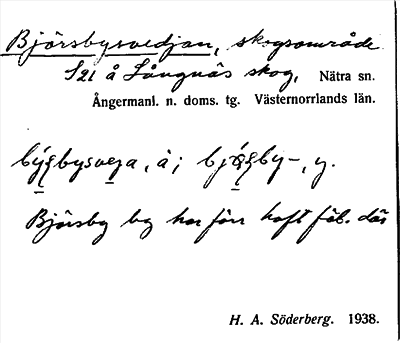 Björsbysvedjan, skogsområde
S21 å Långnäs skog, Nätra sn.
Ångermanl. n. doms. tg. Västernorrlands län.
Björsby by har förr haft fäb. där
H. A. Söderberg. 1938.